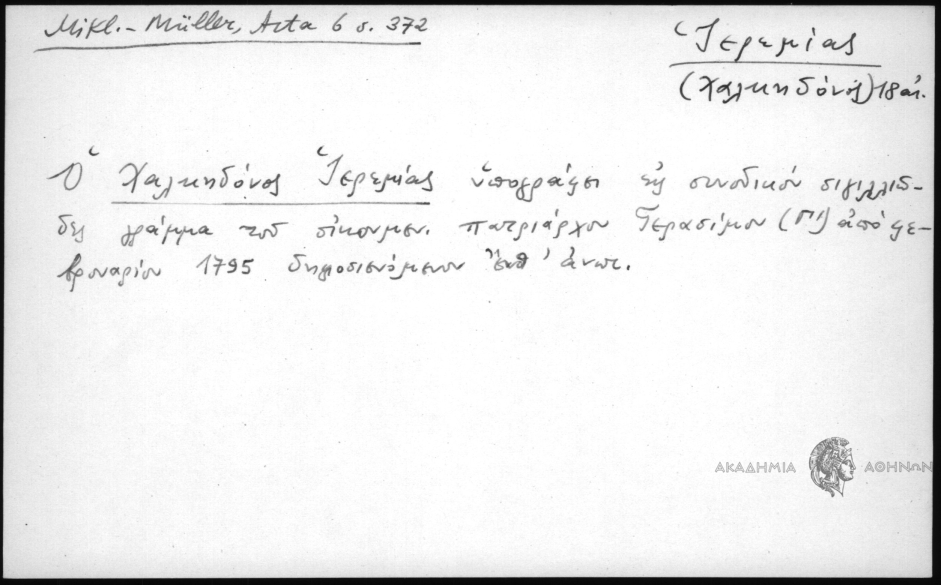 Mikl.-Müller, Acta 6 σ. 372
Ἱερεμίας
(Χαλκηδόνος) 18 αἰ.
Ὁ Χαλκηδόνος Ἱερεμίας ὑπογράφει εἰς συνοδικόν σιγιλλιῶ-
δες γράμμα τοῦ οἰκουμεν. πατριάρχου Γερασίμου (Γ') ἀπό φε-
βρουαρίου 1795 δημοσιευόμενον ἀνωτ.
ΑΚΑΔΗΜΙΑ ΑΘΗΝΩΝ